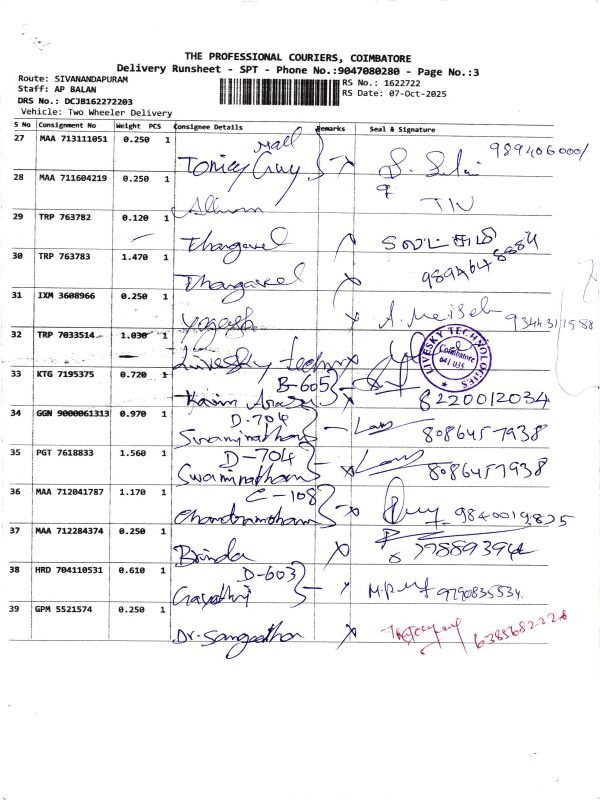 THE PROFESSIONAL COURIERS, COIMBATORE
Delivery Runsheet - SPT - Phone No.:9047080280 - Page No.:3
Route: SIVANANDAPURAM
RS No.: 1622722
Staff: AP BALAN
RS Date: 07-Oct-2025
DRS No.: DCJB162272203
Vehicle: Two Wheeler Delivery
S No Consignment No Weight PCS Consignee Details Remarks Seal & Signature
27 MAA 713111051 0.250 1
28 MAA 711604219 0.250 1
29 TRP 763782 0.120 1 Thangavel
30 TRP 763783 1.470 1 Thangavel
31 IXM 3608966 0.250 1 Yogesh
32 TRP 7033514 1.030 1 Livesky Techno
LIVESKY TECHNOLOGIES Coimbatore 641 035
33 KTG 7195375 0.720 1 B-605 8220012034
34 GGN 9000061313 0.970 1 D-704 Swaminathan 8086457938
35 PGT 7618833 1.560 1 D-704 Swaminathan 8086457938
36 MAA 712041787 1.170 1 C-108 Chandramohan
37 MAA 712284374 0.250 1 Brinda
38 HRD 704110531 0.610 1 D-603 Gayathri 9790835534
39 GPM 5521574 0.250 1 Dr.